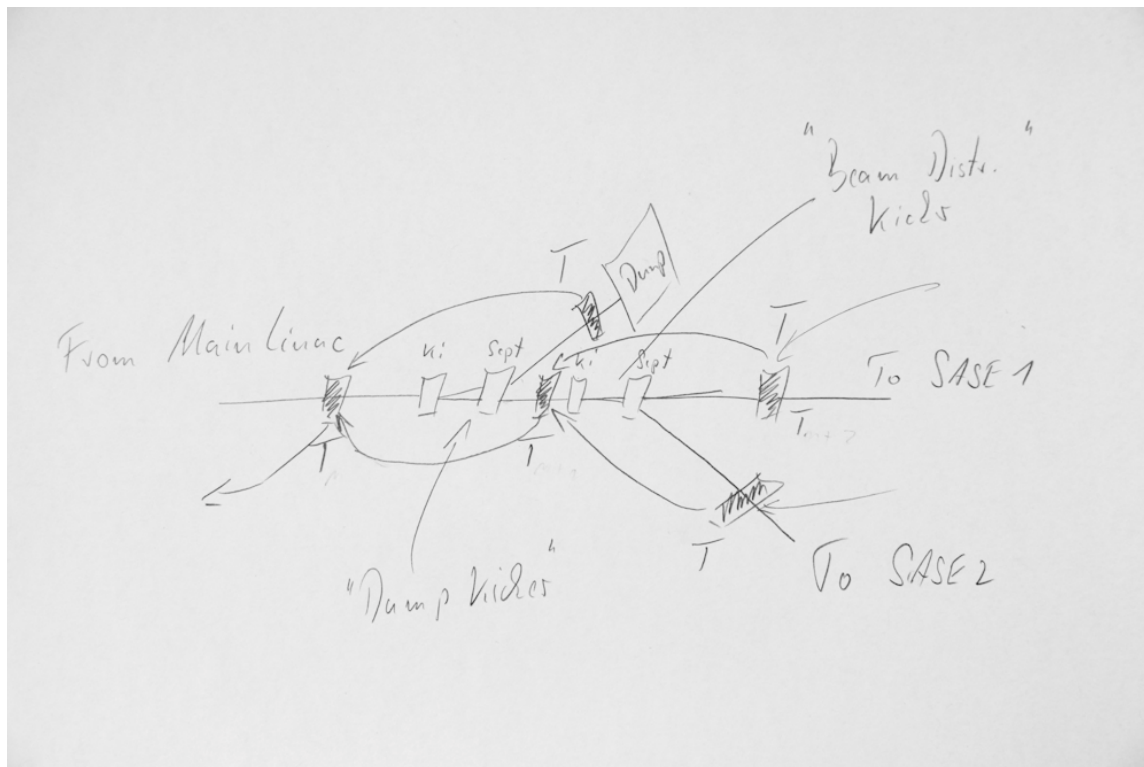 "Beam Distr."
Kicker
T
Dump
From Main Linac
Ki
Sept
Ki
Sept
T
To SASE 1
T
T
T
T
"Dump Kicker"
To SASE 2